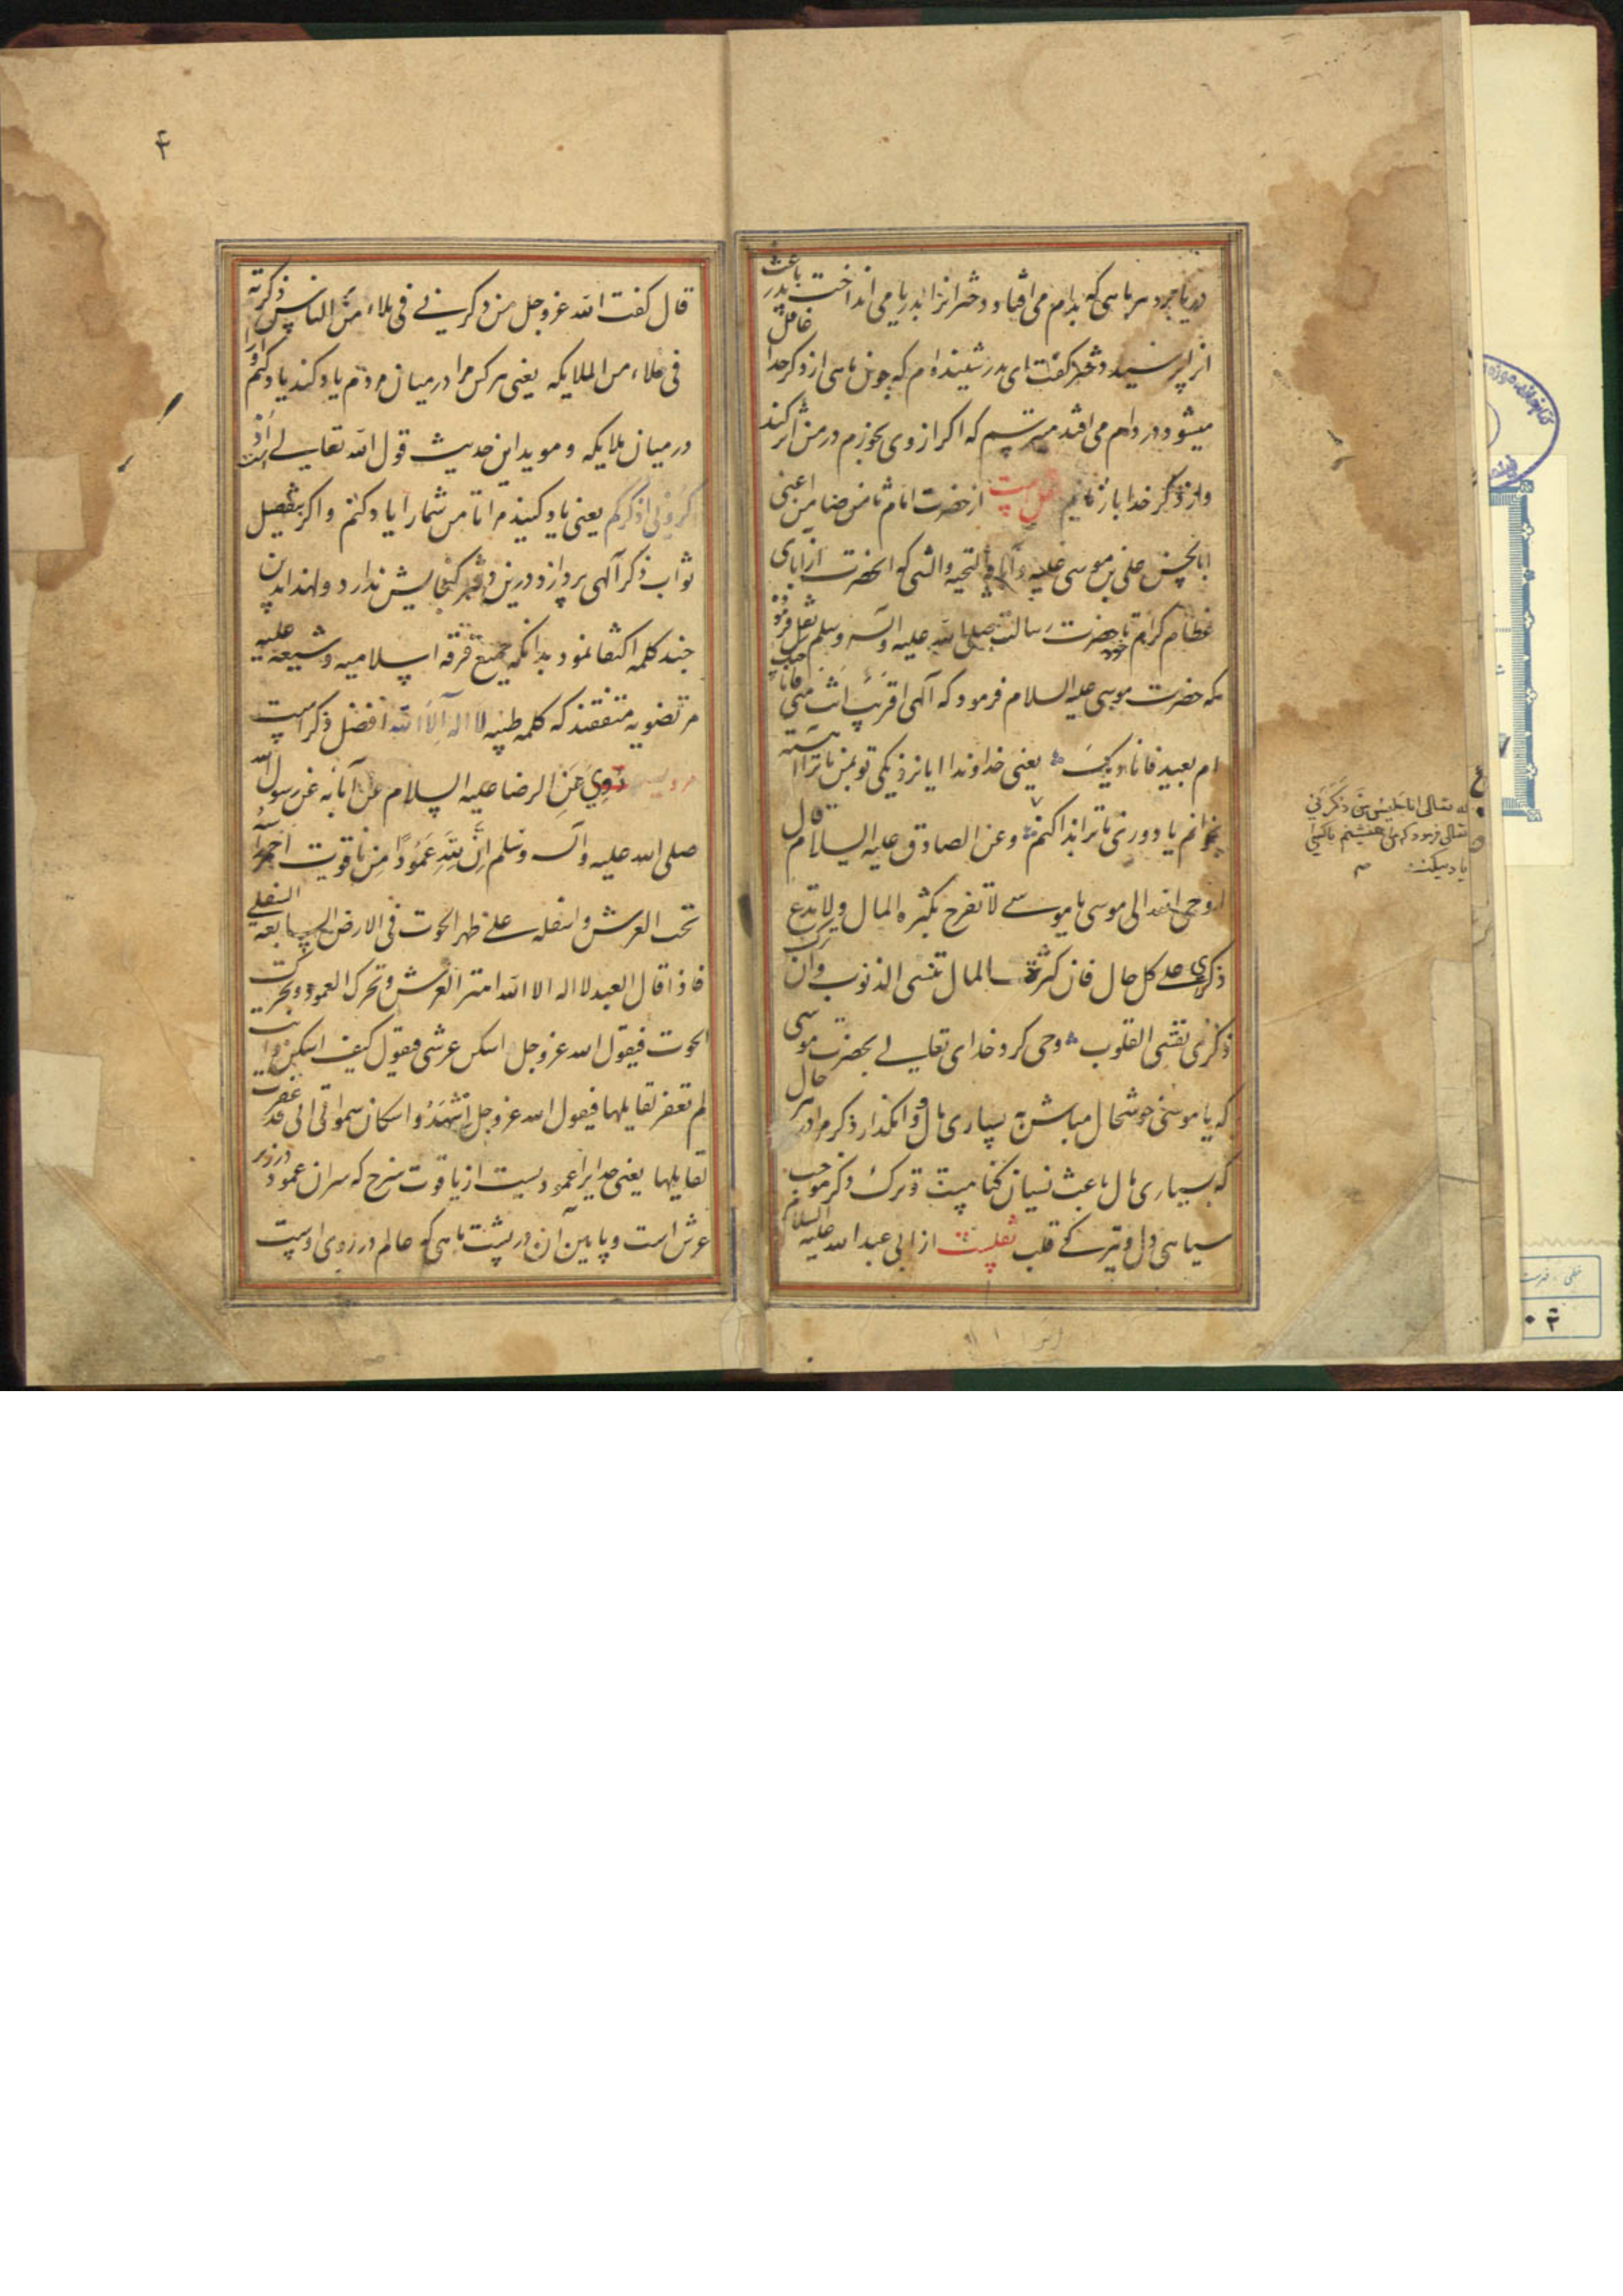 دریا برد هر ماهی که بدام می افتاد دختر انرا بدریا می انداخت پدر باعث
از پرسید دختر گفت ای پدر شنیده ام که چون ماهی از ذکر خدا غافل
میشود در دام می افتد میترسم که اگر از وی بخورم در من اثر کند
و از ذکر خدا باز مانیم نقلست از حضرت امام ثامن ضامن اعنی
ابالحسن علی بن موسی علیه و التحیة والثنا که انحضرت از آبای
عظام کرام خود تا حضرت رسالت صلی الله علیه وآله وسلم نقل فرموده
که حضرت موسی علیه السلام فرمود که آلهی اقریب انت منی فاناجیک
ام بعید فانادیک یعنی خداوندا ایا نزدیکی تو بمن تا ترا آهسته
بخوانم یا دوری تا ترا ندا کنم وعن الصادق علیه السلام قال
اوحی الله الی موسی یا موسی لا تفرح بکثرة المال ولا تدع
ذکری علی کل حال فان کثرة المال تنسی الذنوب وان ترک
ذکری تقسی القلوب وحی کرد خدای تعالی بحضرت موسی
که یا موسی خوشحال مباش به بسیاری مال و وامگذار ذکر مرا در هر حال
که بسیاری مال باعث نسیان کناهست و ترک ذکر موجب
سیاهی دل و تیرکی قلب نقلست از ابی عبد الله علیه السلام
له تعالی انا جلیس من ذکرنی
تعالی فرمود که من همنشینم با کسی
یاد میکند
۴
قال کفت الله عزوجل من ذکرنی فی ملاء من الناس ذکرته
فی ملاء من الملایکه یعنی هر کس مرا در میان مردم یاد کند یاد کنم او را
در میان ملایکه و موید این حدیث قول الله تعالی است اذ
کرونی اذکرکم یعنی یاد کنید مرا تا من شمار آیاد کنم و اکر بتفصیل
ثواب ذکر آلهی پردازد درین دفتر کنجایش ندارد ولهذا بدین
چند کلمه اکتفا نمود بدانکه جمیع فرقه اسلامیه و شیعه علیه
مرتضویه متفقند که کلمه طیبه لا اله الا الله افضل ذکر است
رُوِیَ عَنِ الرضا علیه السلام عن آبائه عن رسول الله
صلی الله علیه وآله وسلم اِنَّ لِلّهِ عَمُودًا مِن یاقوت احمر
تحت العرش واسفله علی ظهر الحوت فی الارض السابعه السفلی
فاذا قال العبد لا اله الا الله اهتز العرش وتحرک العمود وتحرکت
الحوت فیقول الله عزوجل اسکن عرشی فیقول کیف اسکن وانت
لم تغفر لقایلها فیقول الله عزوجل اشهدوا سکان سمواتی انی قد غفرت
لقایلها یعنی خدایرا عمودیست از یاقوت سرخ که سران عمود در زیر
عرش است و پایین آن در پشت ماهی که عالم در روی اوست